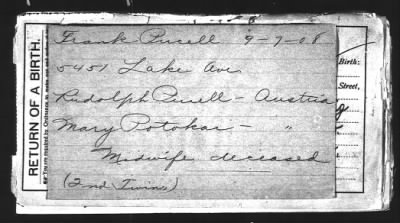 Frank Pucell 9-7-08
5451 Lake Ave
Rudolph Pucell - Austria
Mary Potokar - "
Midwife deceased
(2nd Twins)
RETURN OF A BIRTH.
Birth:
Street,